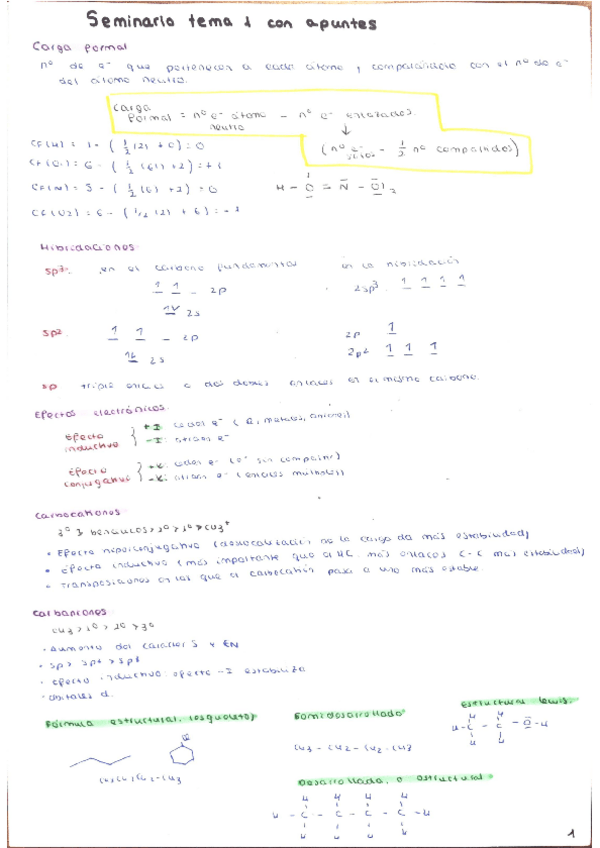 Seminario tema 1 con apuntes
Carga formal
nº de e⁻ que pertenecen a cada átomo y comparándolo con el nº de e⁻
del átomo neutro.
Carga
Formal = nº e⁻ átomo neutro - nº e⁻ enlazados
(nº e⁻ - 1/2 nº compartidos)
CF(H) = 1 - (1/2 (2) + 0) = 0
CF(O1) = 6 - (1/2 (6) + 2) = +1
CF(N) = 5 - (1/2 (6) + 2) = 0
CF(O2) = 6 - (1/2 (2) + 6) = -1
H - O = N - O 2
Hibridaciones
sp³: en el carbono fundamental
en la hibridación
1 1 - 2p
2sp³ 1 1 1 1
2s
sp²
1 1 - 2p
2s
2p 1
2p² 1 1 1
sp triple enlace o dos dobles enlaces en el mismo carbono.
Efectos electrónicos.
Efecto inductivo
+I: ceder e⁻ (R, metales, aniones)
-I: atraer e⁻
Efecto conjugativo
+K: ceder e⁻ (e⁻ sin compartir)
-K: atraer e⁻ (enlaces múltiples)
Carbocationes
3º > 2º > 1º > CH3⁺
• Efecto hiperconjugativo (deslocalización de la carga da más estabilidad)
• Efecto inductivo (más importante que el HC. más enlaces C-C más estabilidad)
• Transposiciones en las que el carbocatión pasa a uno más estable.
Carbaniones.
CH3 > 1º > 2º > 3º
• Aumento del carácter S y EN
• sp > sp² > sp³
• Efecto inductivo: efecto -I estabiliza
• Orbitales d.
Fórmula estructural. (esqueleto)
Semidesarrollado
Estructura Lewis.
CH3 - CH2 - CH2 - CH3
CH3CH2CH2-CH3
H - C - C - O - H
Desarrollada o estructural
H H H H
H - C - C - C - C - H
H H H H
1